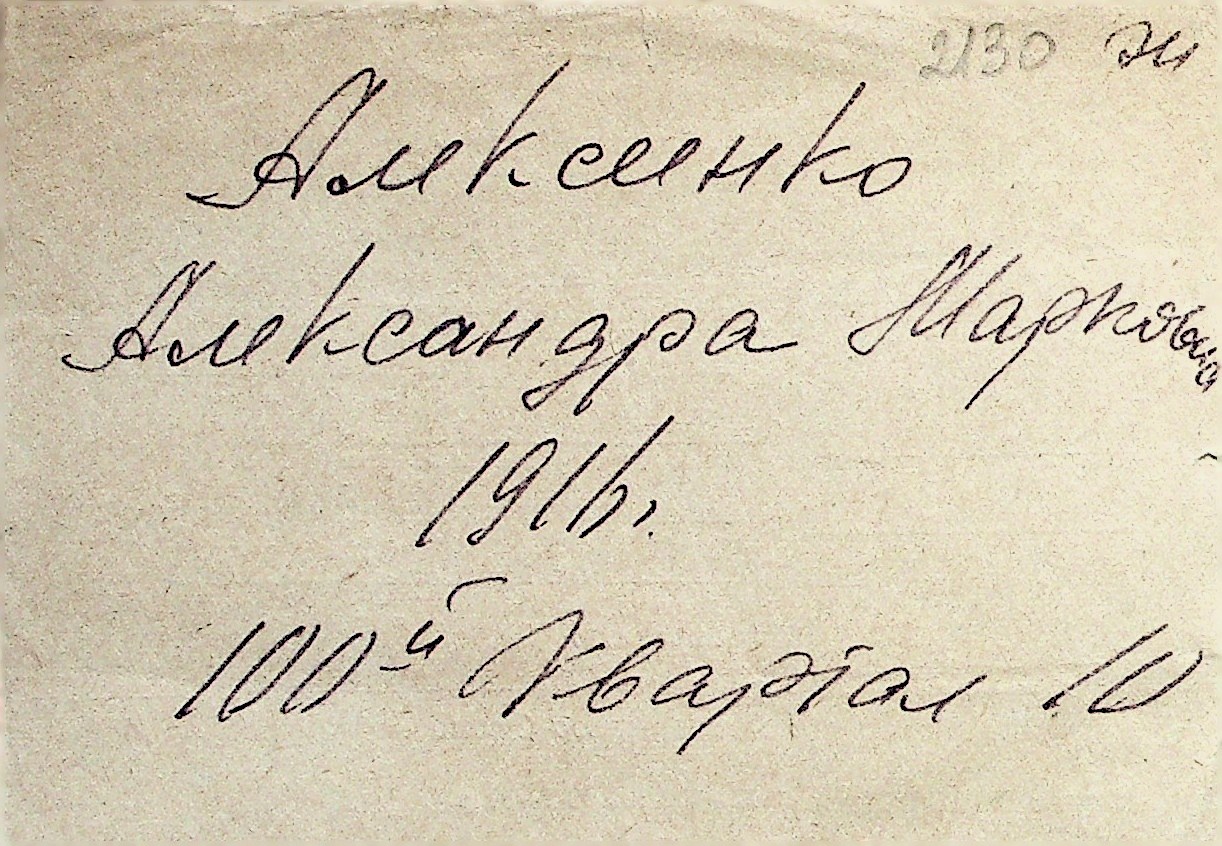 2130
Алексенко
Александра Марковна
1916г.
100й Квартал 10